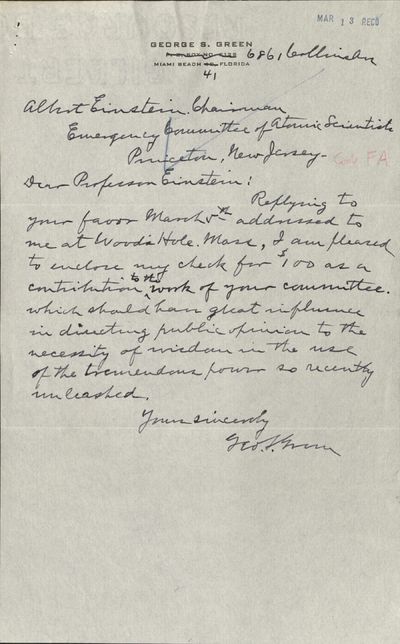 MAR 13 REC'D
GEORGE S. GREEN
6861 Collins Av
MIAMI BEACH FLORIDA
41
Albert Einstein. Chairman
Emergency Committee of Atomic Scientists
Princeton, New Jersey-
FA
Dear Professor Einstein:
Replying to
your favor March 5th addressed to
me at Woods Hole. Mass, I am pleased
to enclose my check for $100 as a
contribution to the work of your committee.
which should have great influence
in directing public opinion to the
necessity of wisdom in the use
of the tremendous power so recently
unleashed.
Yours sincerely
Geo. S. Green